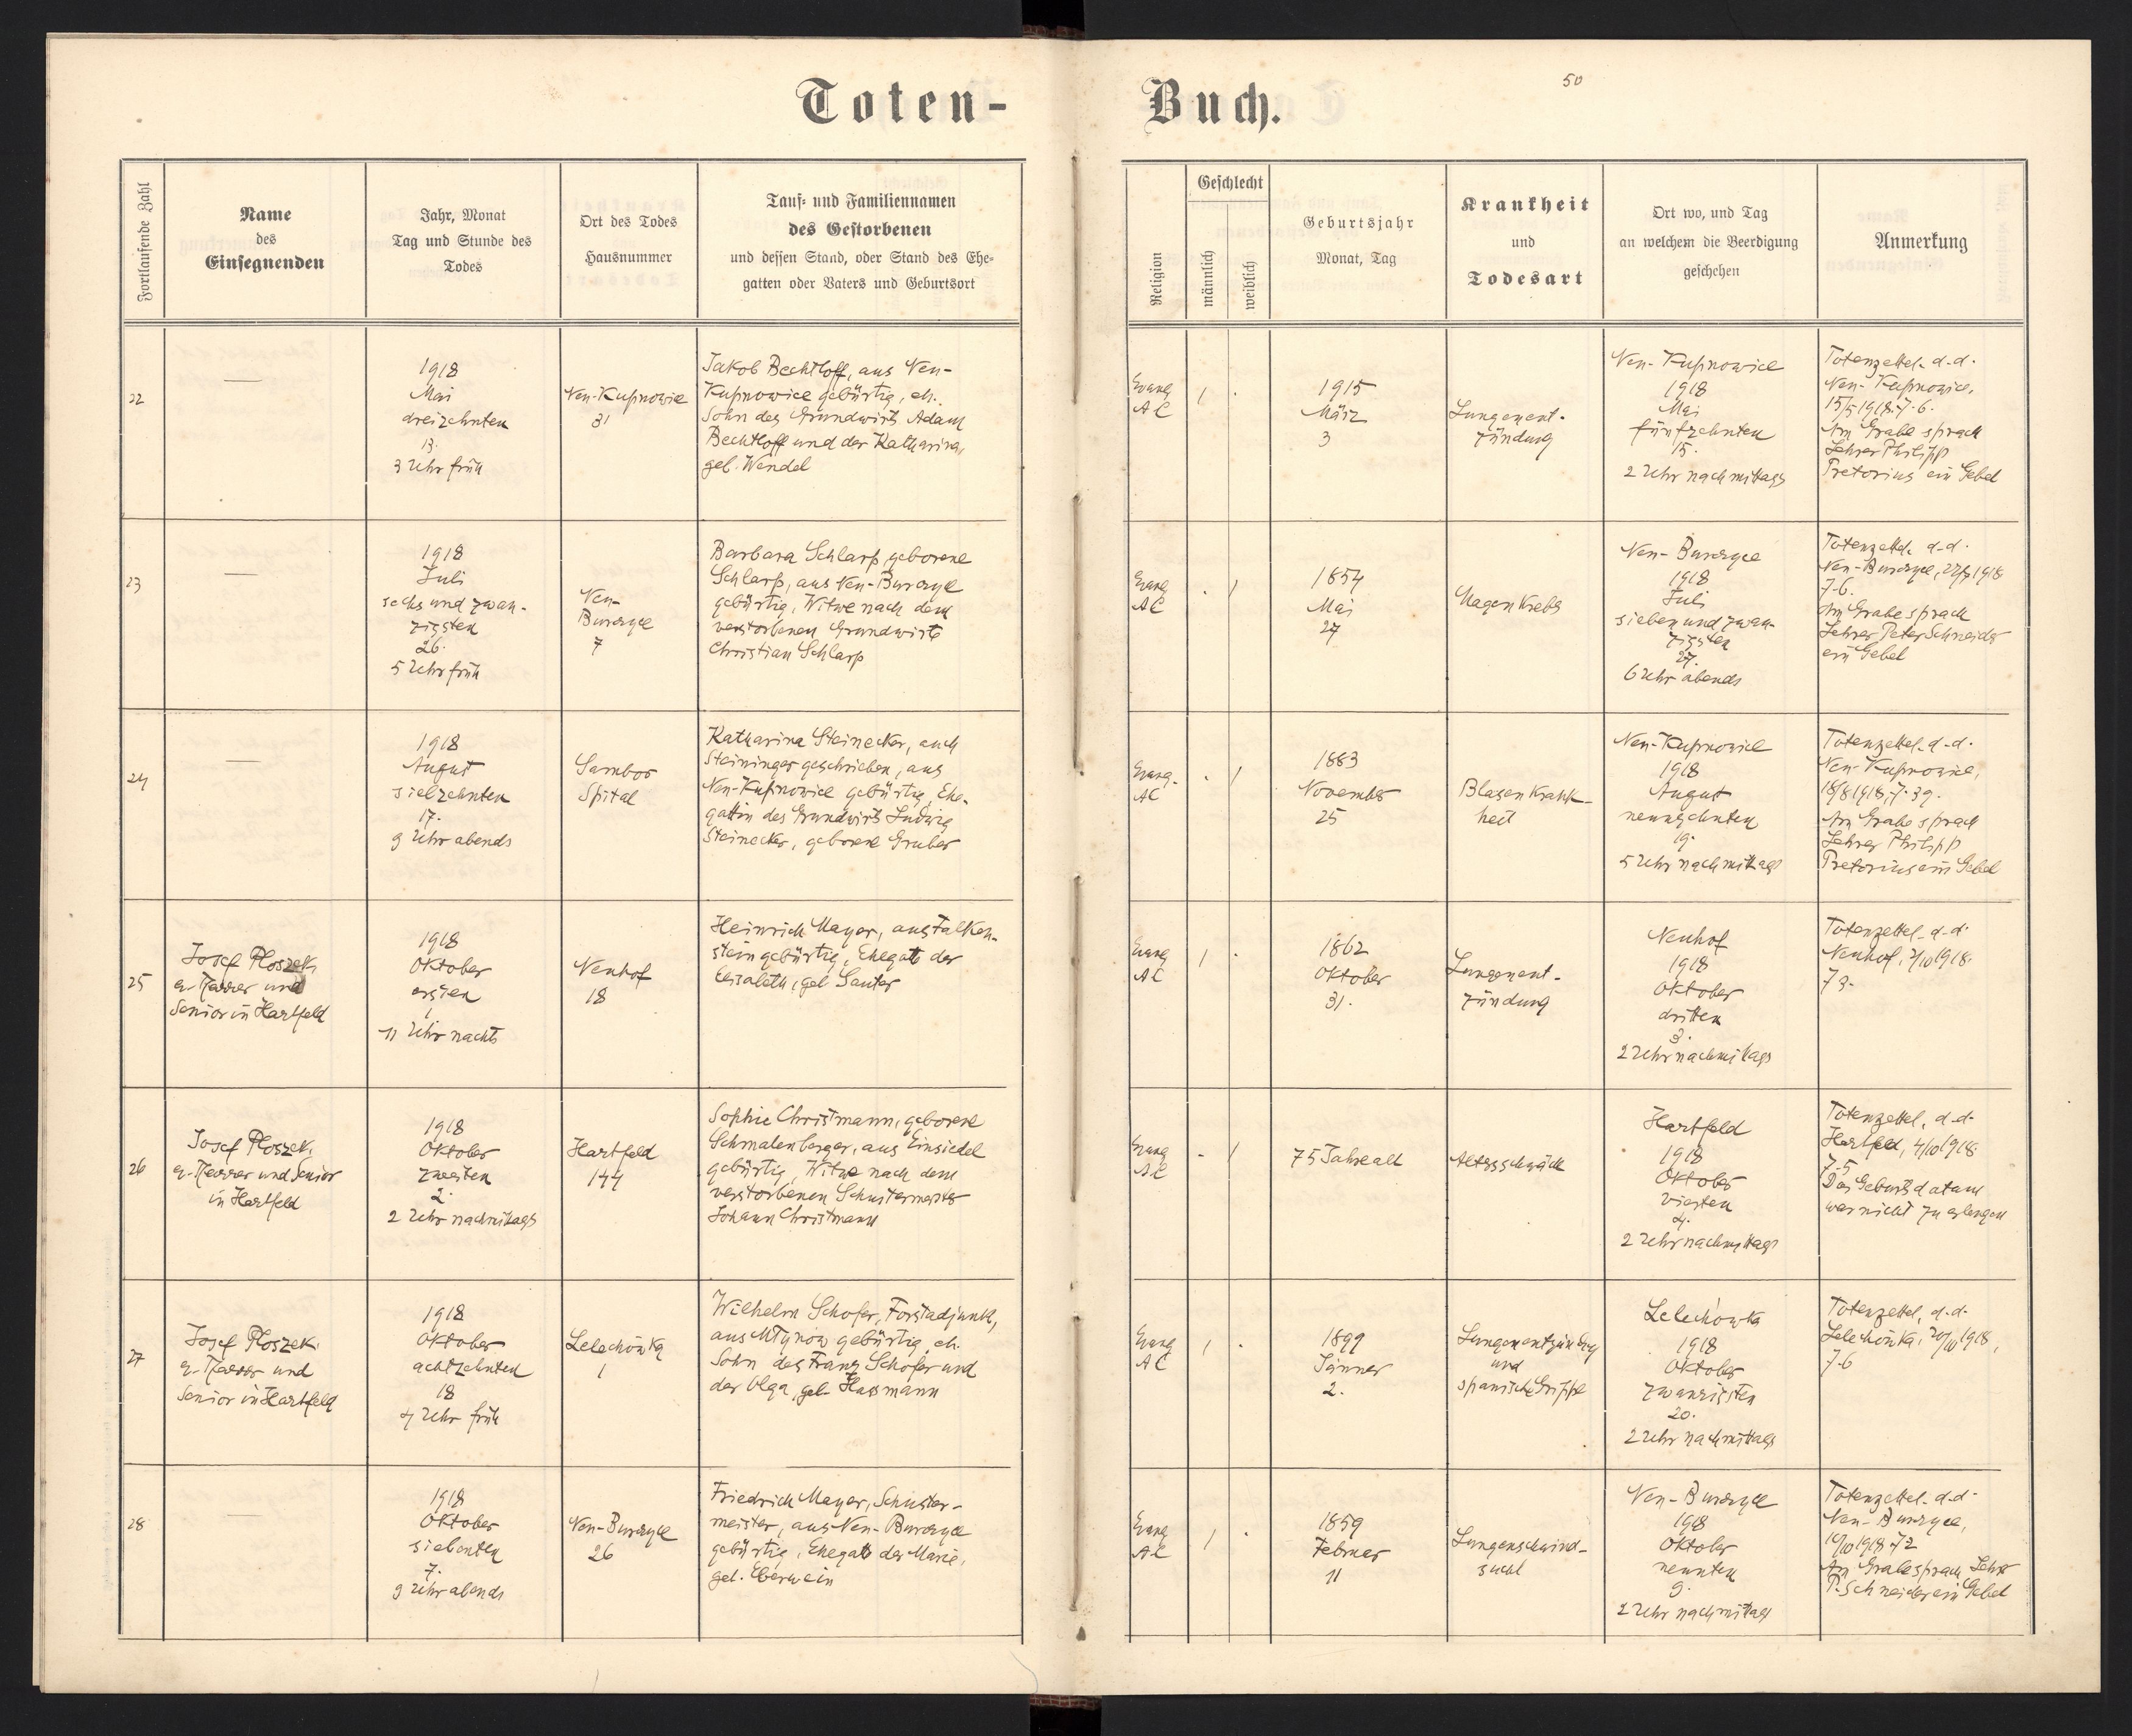 50
Toten-
Buch.
Fortlaufende Zahl
Name
des
Einsegnenden
Jahr, Monat
Tag und Stunde des
Todes
Ort des Todes
Hausnummer
Tauf- und Familiennamen
des Gestorbenen
und dessen Stand, oder Stand des Ehe-
gatten oder Vaters und Geburtsort
Religion
Geschlecht
männlich
weiblich
Geburtsjahr
Monat, Tag
Krankheit
und
Todesart
Ort wo, und Tag
an welchem die Beerdigung
geschehen
Anmerkung
22
—
1918
Mai
dreizehnten
13.
3 Uhr früh
Neu-Kupnowice
31
Jakob Bechtloff, aus Neu-
Kupnowice gebürtig, eh.
Sohn des Grundwirts Adam
Bechtloff und der Katharina,
geb. Wendel
Evang
AC
1 .
1915
März
3
Lungenent-
zündung
Neu-Kupnowice
1918
Mai
fünfzehnten
15.
2 Uhr nachmittags
Totenzettel d.d.
Neu-Kupnowice,
15/5 1918. 7.6.
Am Grabe sprach
Lehrer Philipp
Pretorius ein Gebet
23
—
1918
Juli
sechs und zwan-
zigsten
26.
5 Uhr früh
Neu-
Burczyce
7
Barbara Schlarp, geborene
Schlarp, aus Neu-Burczyce
gebürtig, Witwe nach dem
verstorbenen Grundwirte
Christian Schlarp
Evang
AC
. 1
1854
Mai
27
Magenkrebs
Neu-Burczyce
1918
Juli
sieben und zwan-
zigsten
27.
6 Uhr abends
Totenzettel d.d.
Neu-Burczyce, 27/7 1918
7.6.
Am Grabe sprach
Lehrer Peter Schneider
ein Gebet
24
—
1918
August
siebzehnten
17.
9 Uhr abends
Sambor
Spital
Katharina Steinecker, auch
Steininger geschrieben, aus
Neu-Kupnowice gebürtig, Ehe-
gattin des Grundwirts Ludwig
Steinecker, geborene Gruber
Evang.
AC
. 1
1883
November
25
Blasenkrank-
heit
Neu-Kupnowice
1918
August
neunzehnten
19.
5 Uhr nachmittags
Totenzettel d.d.
Neu-Kupnowice,
18/8 1918, 7.39.
Am Grabe sprach
Lehrer Philipp
Pretorius ein Gebet
25
Josef Ploszek,
ev. Pfarrer und
Senior in Hartfeld
1918
Oktober
ersten
1
11 Uhr nachts
Neuhof
18
Heinrich Mayer, aus Falken-
stein gebürtig, Ehegatte der
Elisabeth, geb. Sauter
Evang
AC
1 .
1862
Oktober
31.
Lungenent-
zündung
Neuhof
1918
Oktober
dritten
3.
2 Uhr nachmittags
Totenzettel d.d.
Neuhof, 3/10 1918.
7 3.
26
Josef Ploszek,
ev. Pfarrer und Senior
in Hartfeld
1918
Oktober
zweiten
2.
2 Uhr nachmittags
Hartfeld
144
Sophie Christmann, geborene
Schmalenberger, aus Einsiedel
gebürtig, Witwe nach dem
verstorbenen Schustermeister
Johann Christmann
Evang
AC
- 1
75 Jahre alt
Altersschwäche
Hartfeld
1918
Oktober
vierten
4.
2 Uhr nachmittags
Totenzettel, d.d.
Hartfeld, 4/10 1918.
7.5
Das Geburtsdatum
war nicht zu erlangen
27
Josef Ploszek,
ev. Pfarrer und
Senior in Hartfeld
1918
Oktober
achtzehnten
18
4 Uhr früh
Lelechówka
1
Wilhelm Schofer, Forstadjunkt,
aus Młynów gebürtig, eh.
Sohn des Franz Schofer und
der Olga, geb. Hassmann
Evang
AC
1 .
1899
Jänner
2.
Lungenentzündung
und
spanische Grippe
Lelechówka
1918
Oktober
zwanzigsten
20.
2 Uhr nachmittags
Totenzettel, d.d.
Lelechówka, 20/10 1918,
7.6
28
—
1918
Oktober
siebenten
7.
9 Uhr abends
Neu-Burczyce
26
Friedrich Mayer, Schuster-
meister, aus Neu-Burczyce
gebürtig, Ehegatte der Marie,
geb. Eberwein
Evang
AC
1 .
1859
Februar
11
Lungenschwind-
sucht
Neu-Burczyce
1918
Oktober
neunten
9.
2 Uhr nachmittags
Totenzettel d.d.
Neu-Burczyce,
10/10 1918. 7.2
Am Grabe sprach Lehrer
P. Schneider ein Gebet